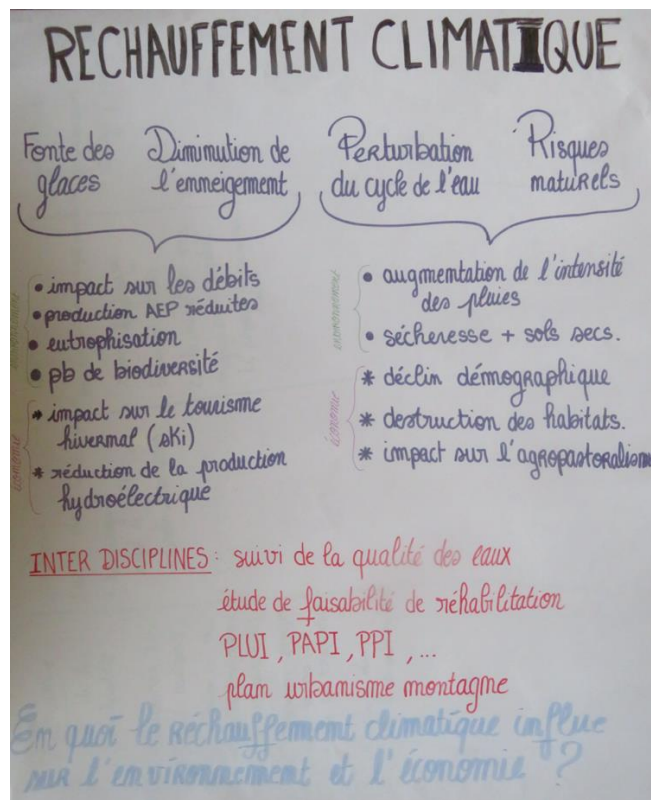 RECHAUFFEMENT CLIMATIQUE
Fonte des
glaces
Diminution de
l'enneigement
Perturbation
du cycle de l'eau
Risques
naturels
environnement
• impact sur les débits
• production AEP réduites
• eutrophisation
• pb de biodiversité
économie
* impact sur le tourisme
hivernal (ski)
* réduction de la production
hydroélectrique
environnement
• augmentation de l'intensité
des pluies
• sécheresse + sols secs.
économie
* déclin démographique
* destruction des habitats.
* impact sur l'agropastoralisme
INTER DISCIPLINES : suivi de la qualité des eaux
étude de faisabilité de réhabilitation
PLUI, PAPI, PPI, ...
plan urbanisme montagne
En quoi le réchauffement climatique influe
sur l'environnement et l'économie ?